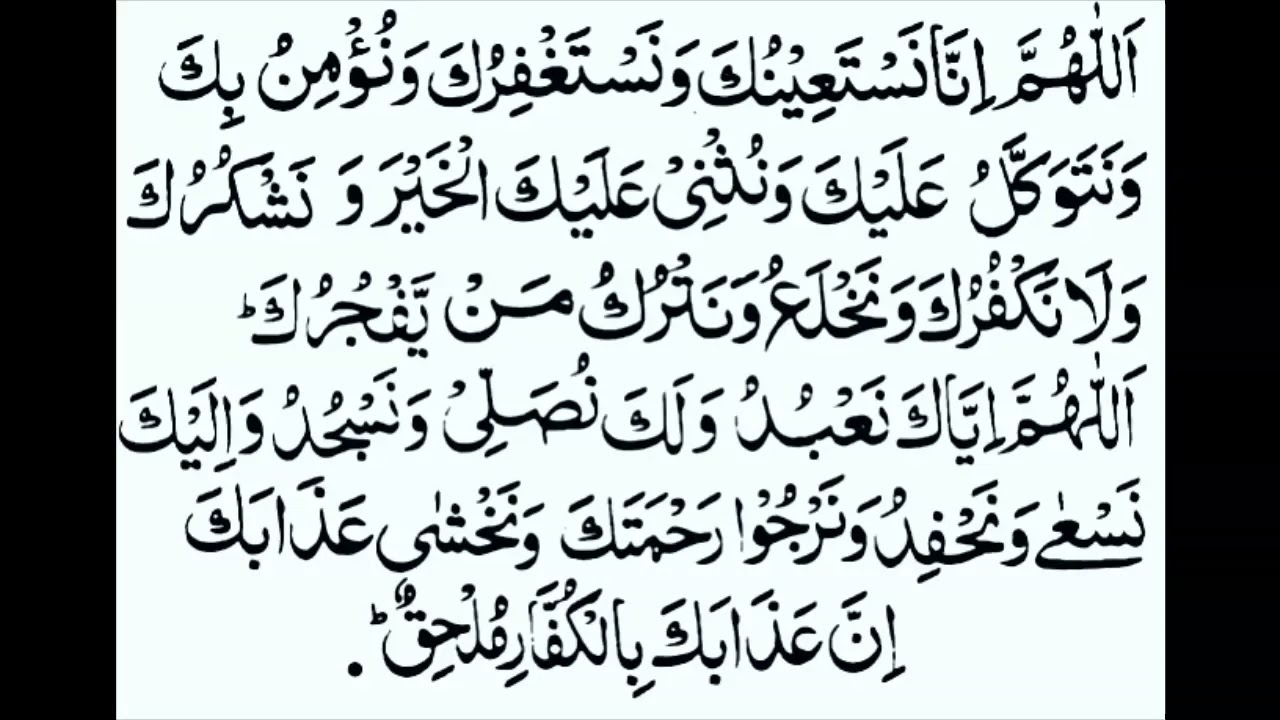 اَللّٰهُمَّ اِنَّا نَسْتَعِيْنُكَ وَنَسْتَغْفِرُكَ وَنُؤْمِنُ بِكَ
وَنَتَوَكَّلُ عَلَيْكَ وَنُثْنِيْ عَلَيْكَ الْخَيْرَ وَ نَشْكُرُكَ
وَلَا نَكْفُرُكَ وَنَخْلَعُ وَنَتْرُكُ مَنْ يَّفْجُرُكَ ؕ
اَللّٰهُمَّ اِيَّاكَ نَعْبُدُ وَلَكَ نُصَلِّيْ وَنَسْجُدُ وَاِلَيْكَ
نَسْعٰى وَنَحْفِدُ وَنَرْجُوْا رَحْمَتَكَ وَنَخْشٰى عَذَابَكَ
اِنَّ عَذَابَكَ بِالْكُفَّارِ مُلْحِقٌ ؕ .